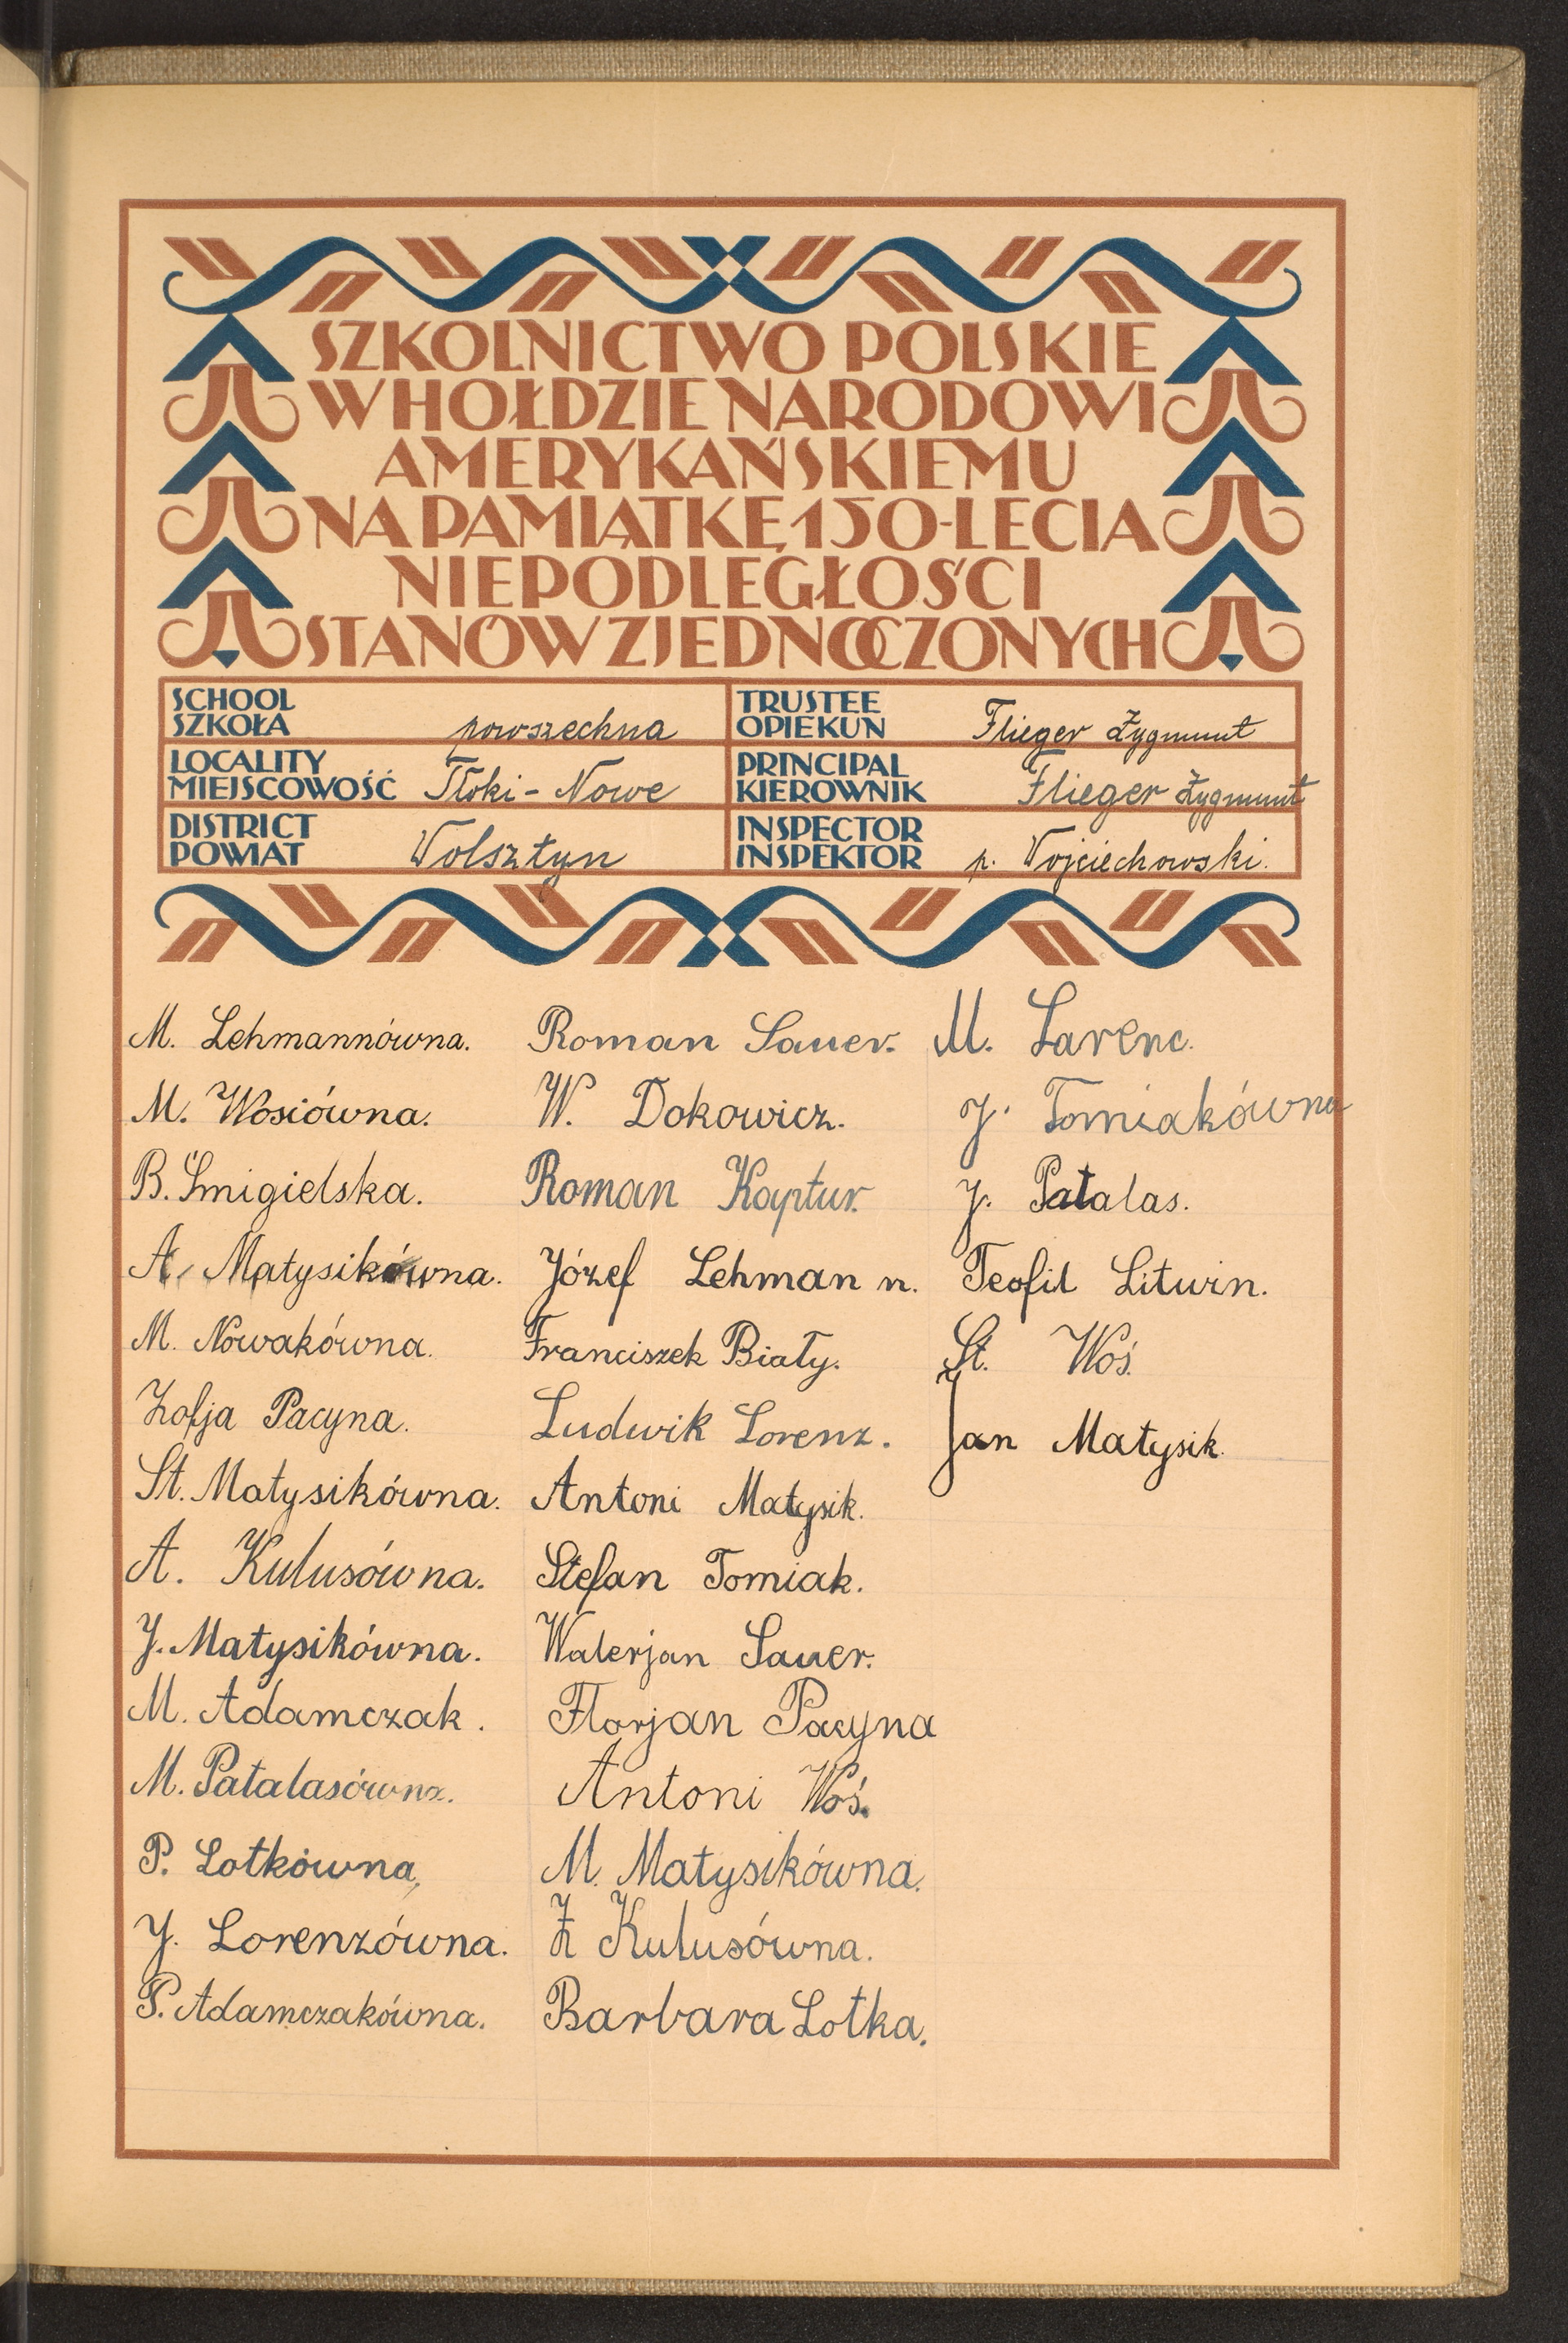 SZKOLNICTWO POLSKIE
W HOŁDZIE NARODOWI
AMERYKAŃSKIEMU
NA PAMIĄTKĘ 150-LECIA
NIEPODLEGŁOŚCI
STANÓW ZJEDNOCZONYCH
SCHOOL
SZKOŁA powszechna
TRUSTEE
OPIEKUN Flieger Zygmunt
LOCALITY
MIEJSCOWOŚĆ Tłoki-Nowe
PRINCIPAL
KIEROWNIK Flieger Zygmunt
DISTRICT
POWIAT Wolsztyn
INSPECTOR
INSPEKTOR p. Wojciechowski.
M. Lehmannówna.
M. Wosiówna.
B. Śmigielska.
A. Matysikówna.
M. Nowakówna.
Zofja Pacyna.
St. Matysikówna.
A. Kulusówna.
J. Matysikówna.
M. Adamczak.
M. Patalasówna.
P. Lotkówna,
J. Lorenzówna.
P. Adamczakówna.
Roman Sauer.
W. Dokowicz.
Roman Kaptur.
Józef Lehmann.
Franciszek Biały.
Ludwik Lorenz.
Antoni Matysik.
Stefan Tomiak.
Walerjan Sauer.
Florjan Pacyna
Antoni Woś.
M. Matysikówna.
Z Kulusówna.
Barbara Lotka.
M. Larenc.
J. Tomiakówna
J. Patalas.
Teofil Litwin.
St. Woś.
Jan Matysik.